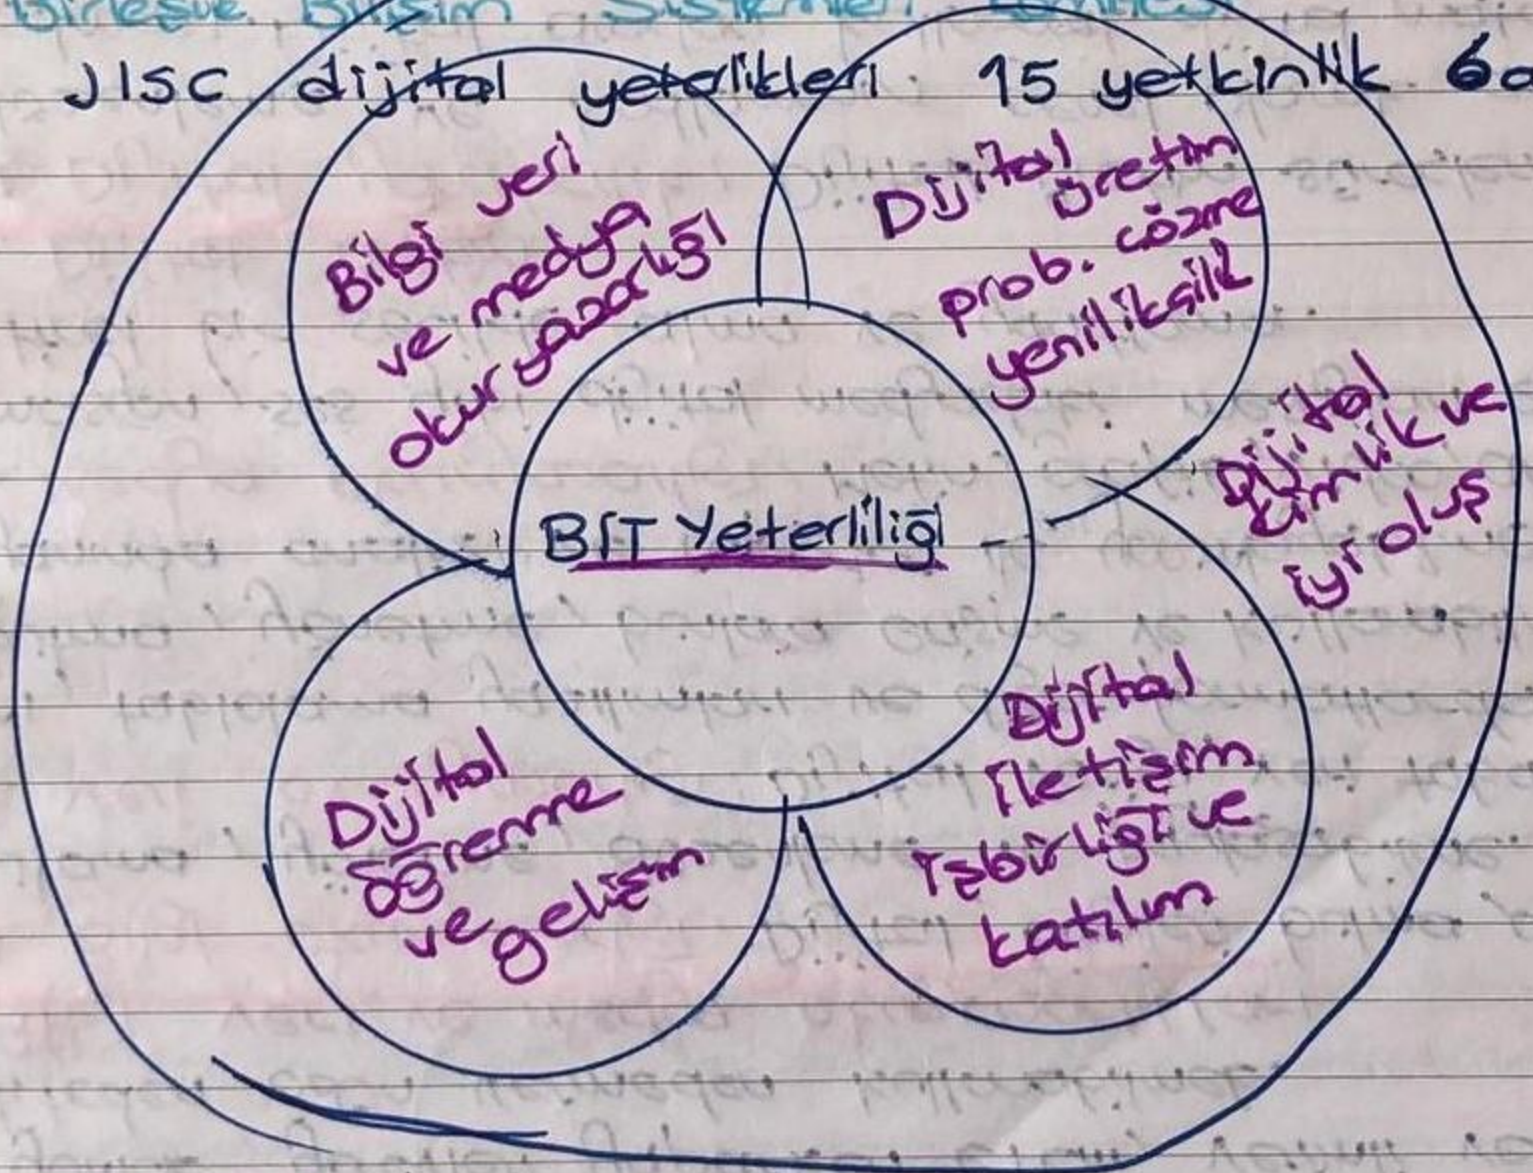 Birleşik Bilişim Sistemleri
JISC dijital yeterlikleri 15 yetkinlik 6
Bilgi veri
ve medya
okur yazarlığı
Dijital üretim
prob. çözme
yenilikçilik
BİT Yeterliliği
Dijital
kimlik ve
iyi oluş
Dijital
öğrenme
ve gelişim
Dijital
iletişim
işbirliği ve
katılım